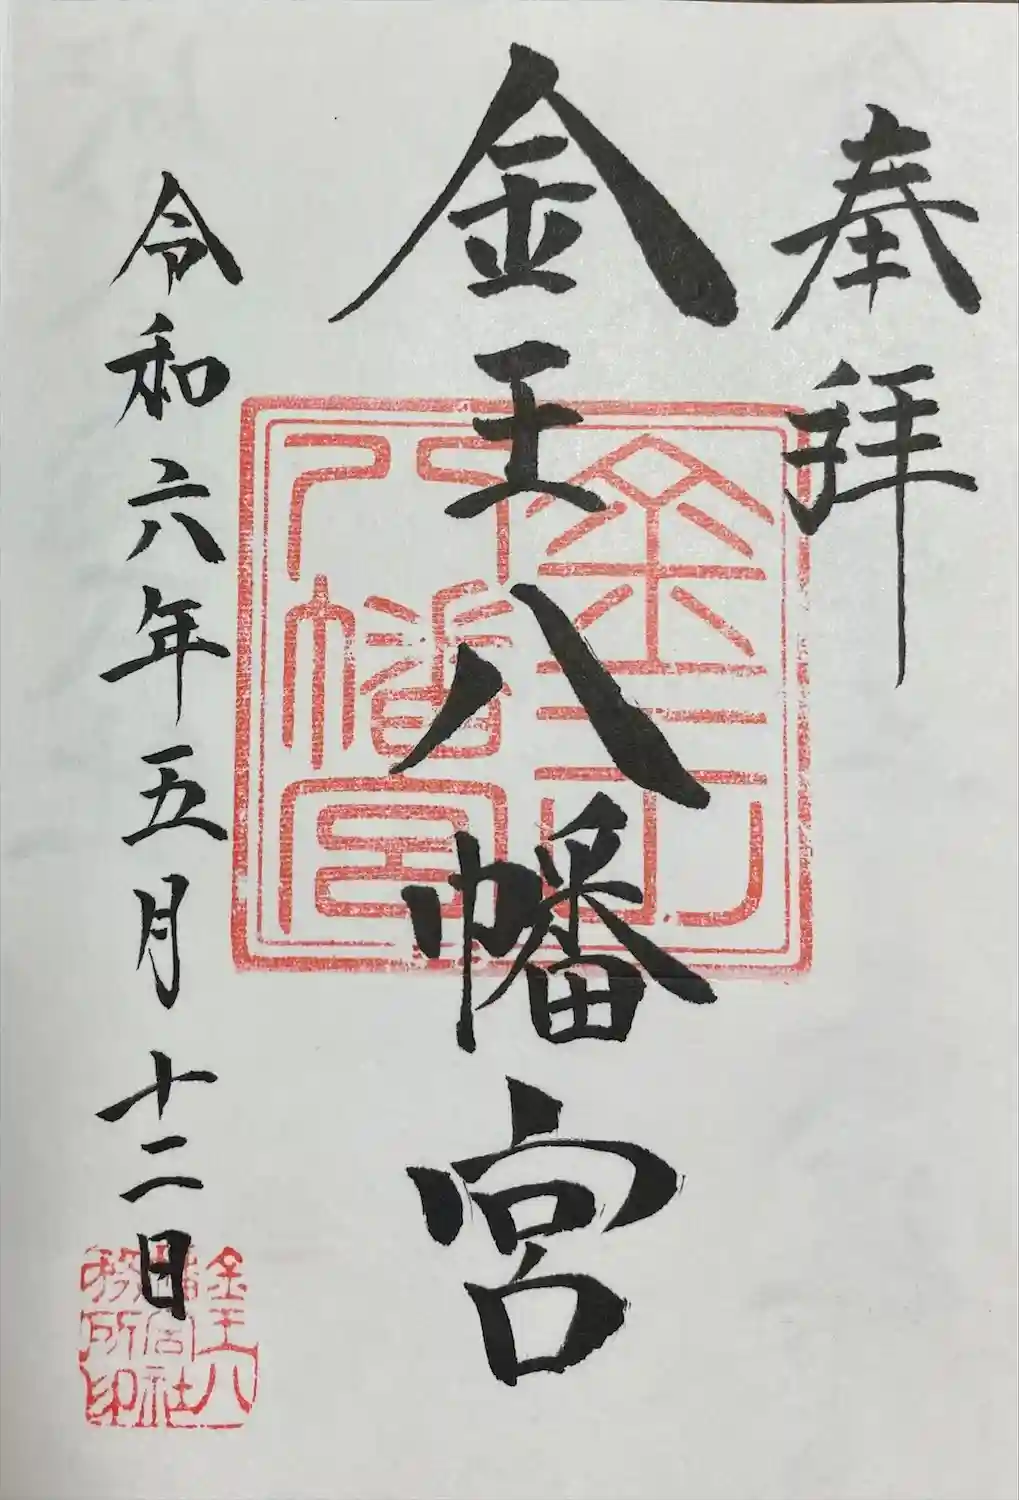 奉拝
金王八幡宮
令和六年五月十二日
金王
八幡宮
金王八
幡宮社
務所印